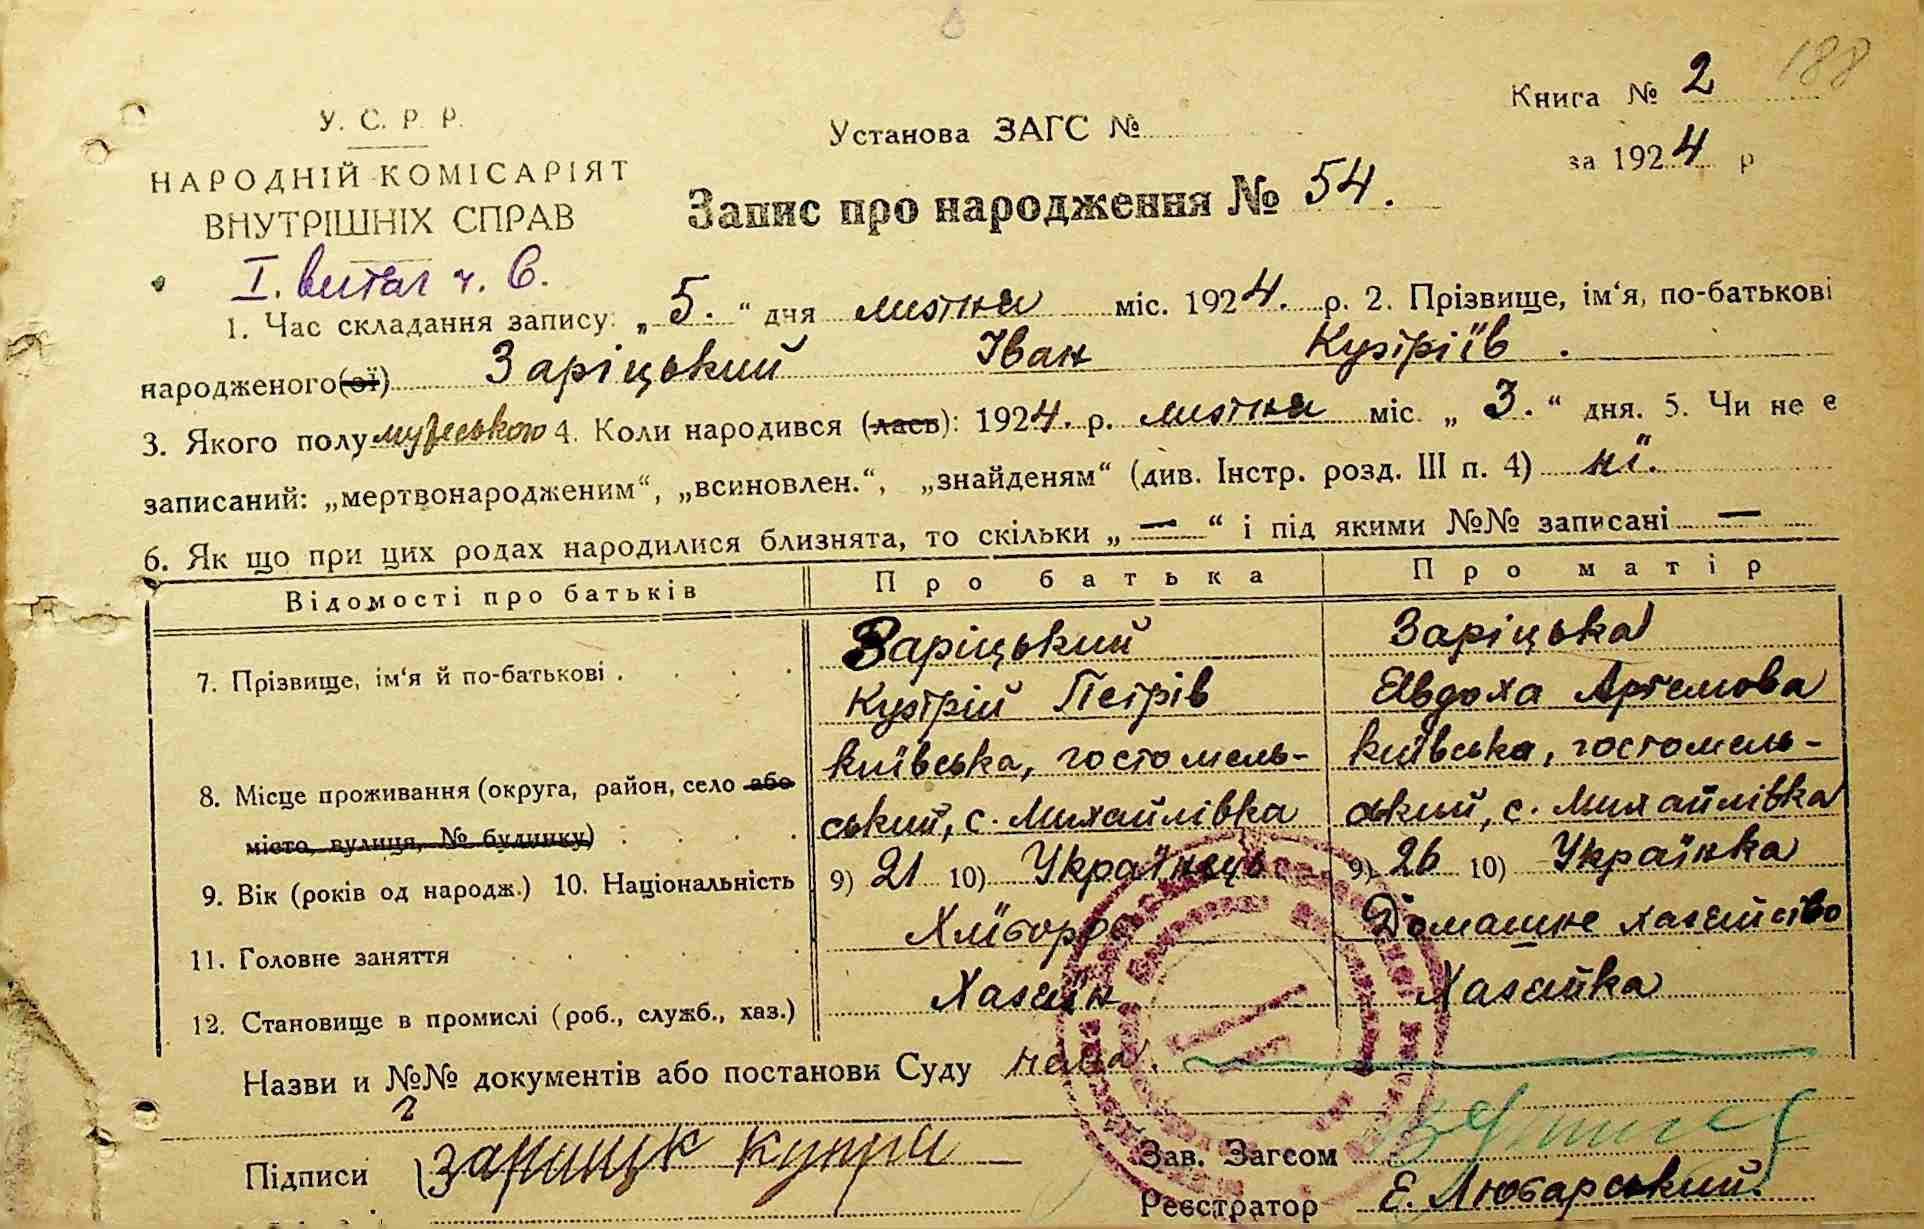 188
Книга № 2
У. С. Р. Р.
Установа ЗАГС №
за 1924 р
НАРОДНІЙ КОМІСАРІЯТ
ВНУТРІШНІХ СПРАВ
Запис про народження № 54.
І. витяг ч. 6.
1. Час складання запису: „5.“ дня липня міс. 1924. р. 2. Прізвище, ім‘я, по-батькові
народженого(ої) Заріцький Іван Купріїв.
3. Якого полу мужеського 4. Коли народився (лась): 1924. р. липня міс. „3.“ дня. 5. Чи не є
записаний: „мертвонародженим“, „всиновлен.“, „знайденям“ (див. Інстр. розд. III п. 4) ні.
6. Як що при цих родах народилися близнята, то скільки „—“ і під якими №№ записані —
Відомості про батьків Про батька Про матір
7. Прізвище, ім‘я й по-батькові . . . . Заріцький Заріцька
Купрій Петрів Явдоха Артемова
8. Місце проживання (округа, район, село або Київська, гостомель- Київська, гостомель-
місто, вулиця, № будинку) . . . ський, с. Михайлівка ський, с. Михайлівка
9. Вік (років од народж.) 10. Національність 9) 21 10) Українець 9) 26 10) Українка
11. Головне заняття Хлібороб Домашнє хазейство
12. Становище в промислі (роб., служб., хаз.) Хазеїн Хазейка
Назви и №№ документів або постанови Суду нема.
Підписи Зарицьк Купри
Зав. Загсом
Реєстратор Е. Любарський.